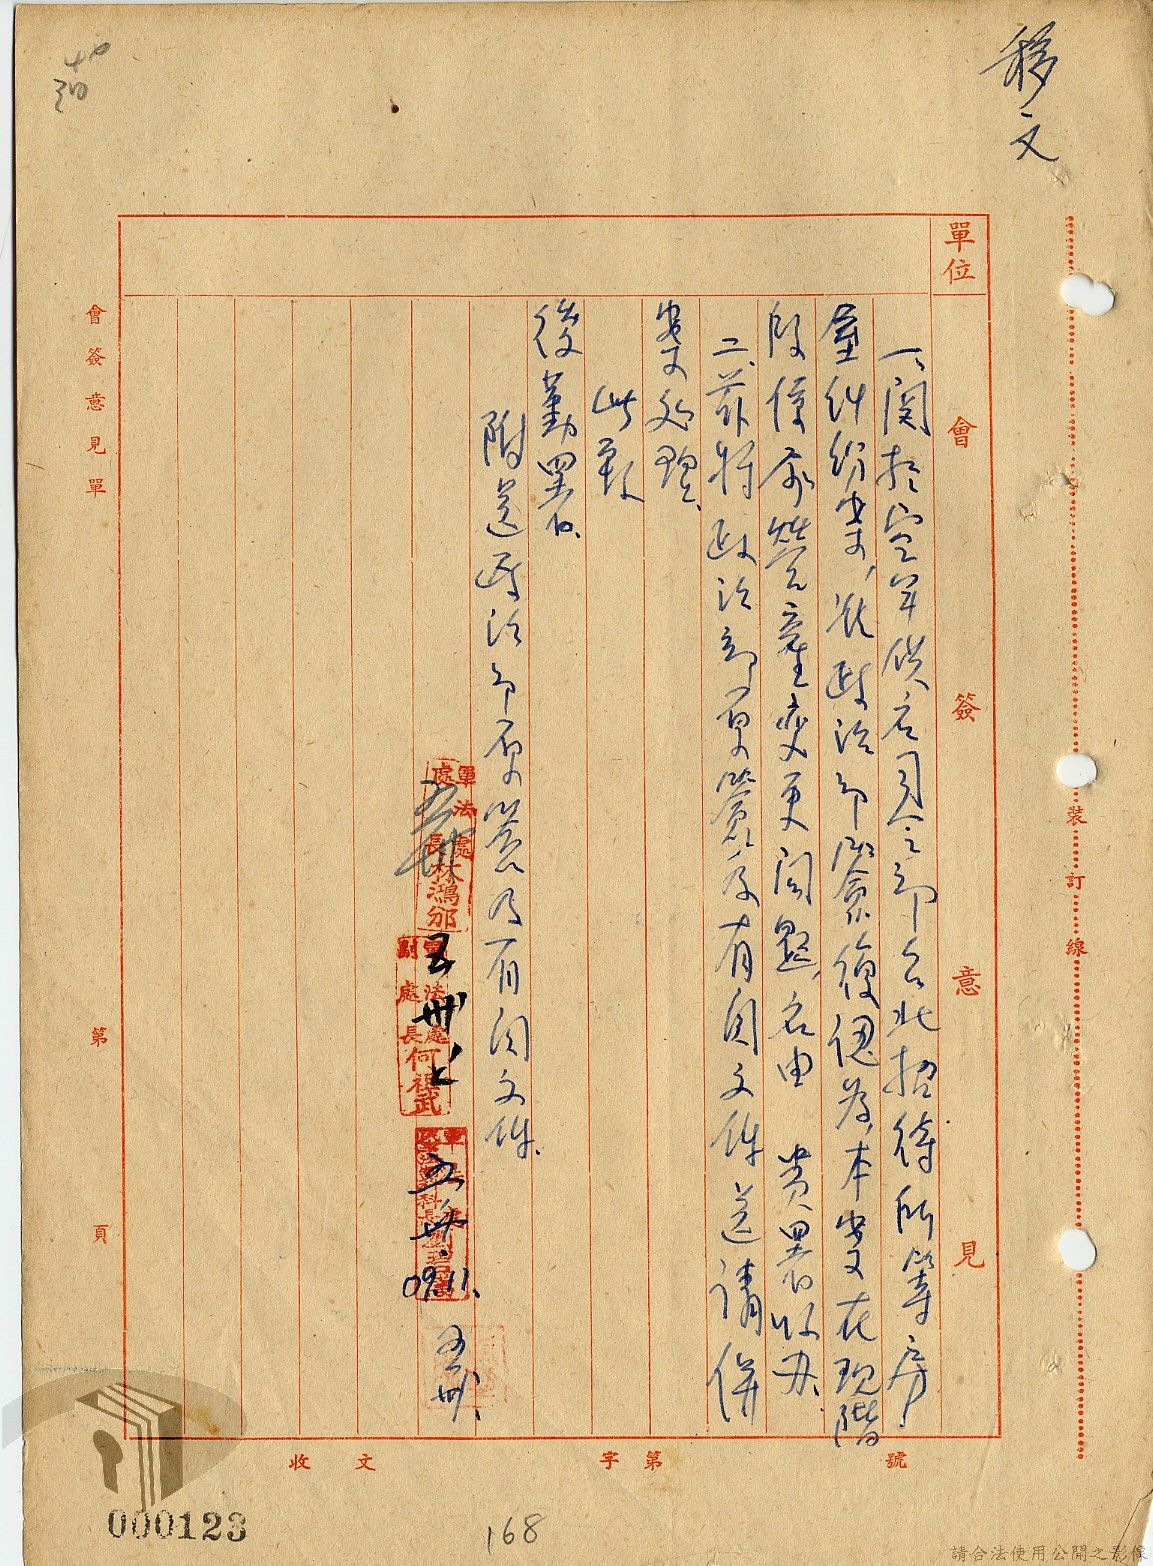 移文
單位
會簽意見
一、関於空軍供应司令部台北招待所等房
屋糾紛案，准政治部簽復認為，本案在現階
段僅係營產变更问題，应由 貴署收办.
二、茲将政治部原簽及有関文件送請併
案处理.
此致
後勤署.
附送政治部原簽及有関文件.
軍法處處長林鴻
軍法處副處長何祖武
五卅
09.11.
裝訂線
會簽意見單
第 頁
收文 字第 號
000123
168
請合法使用公開之影像